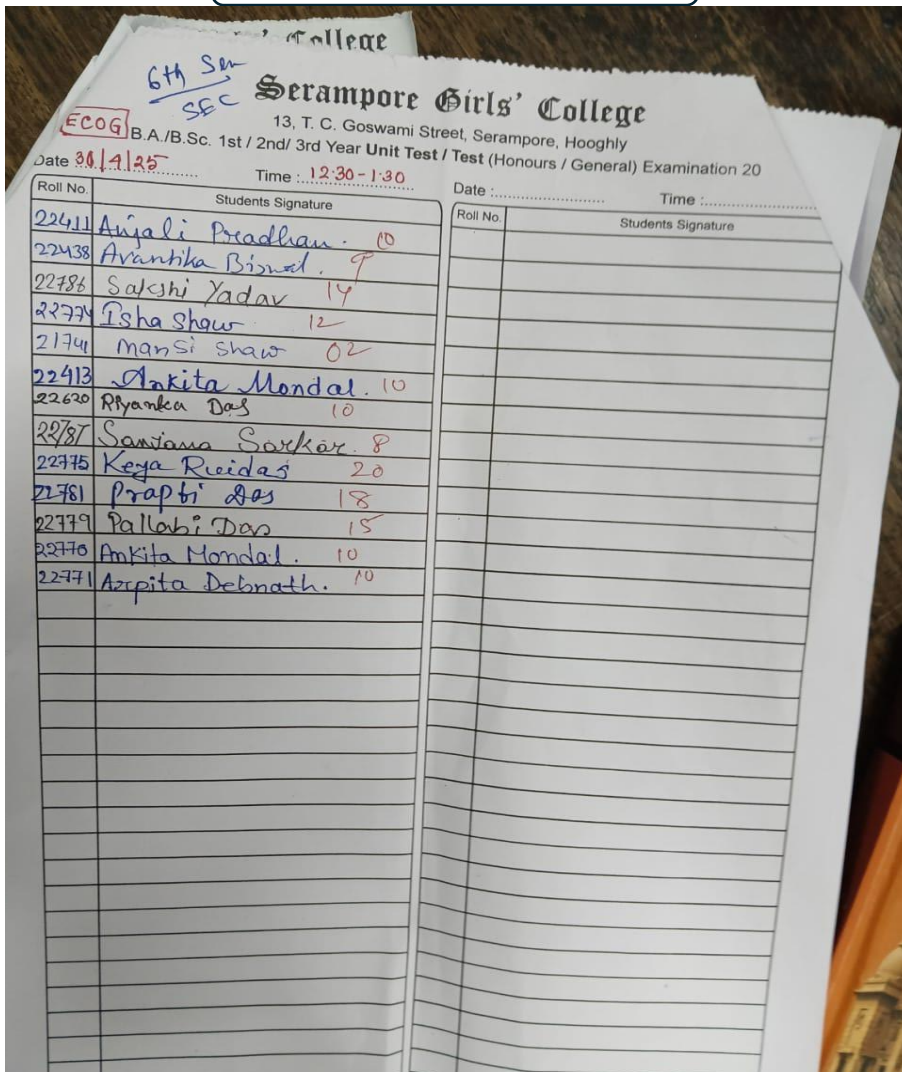 College
6th Sem
SEC
Serampore Girls' College
13, T. C. Goswami Street, Serampore, Hooghly
ECOG
B.A./B.Sc. 1st / 2nd/ 3rd Year Unit Test / Test (Honours / General) Examination 20
Date 30/4/25 Time : 12.30 - 1.30
Date : Time :
Roll No. Students Signature
Roll No. Students Signature
22411 Anjali Pradhan. 10
22438 Avantika 9
22786 Sakshi Yadav 14
22774 Isha Shaw 12
21741 Mansi Shaw 02
22413 Ankita Mondal. 10
22620 Riyanka Das 10
22787 Sanjana Sarkar. 8
22775 Keya Ruidas 20
22781 Prapti Das 18
22779 Pallabi Das 15
22770 Ankita Mondal. 10
22771 Arpita Debnath. 10